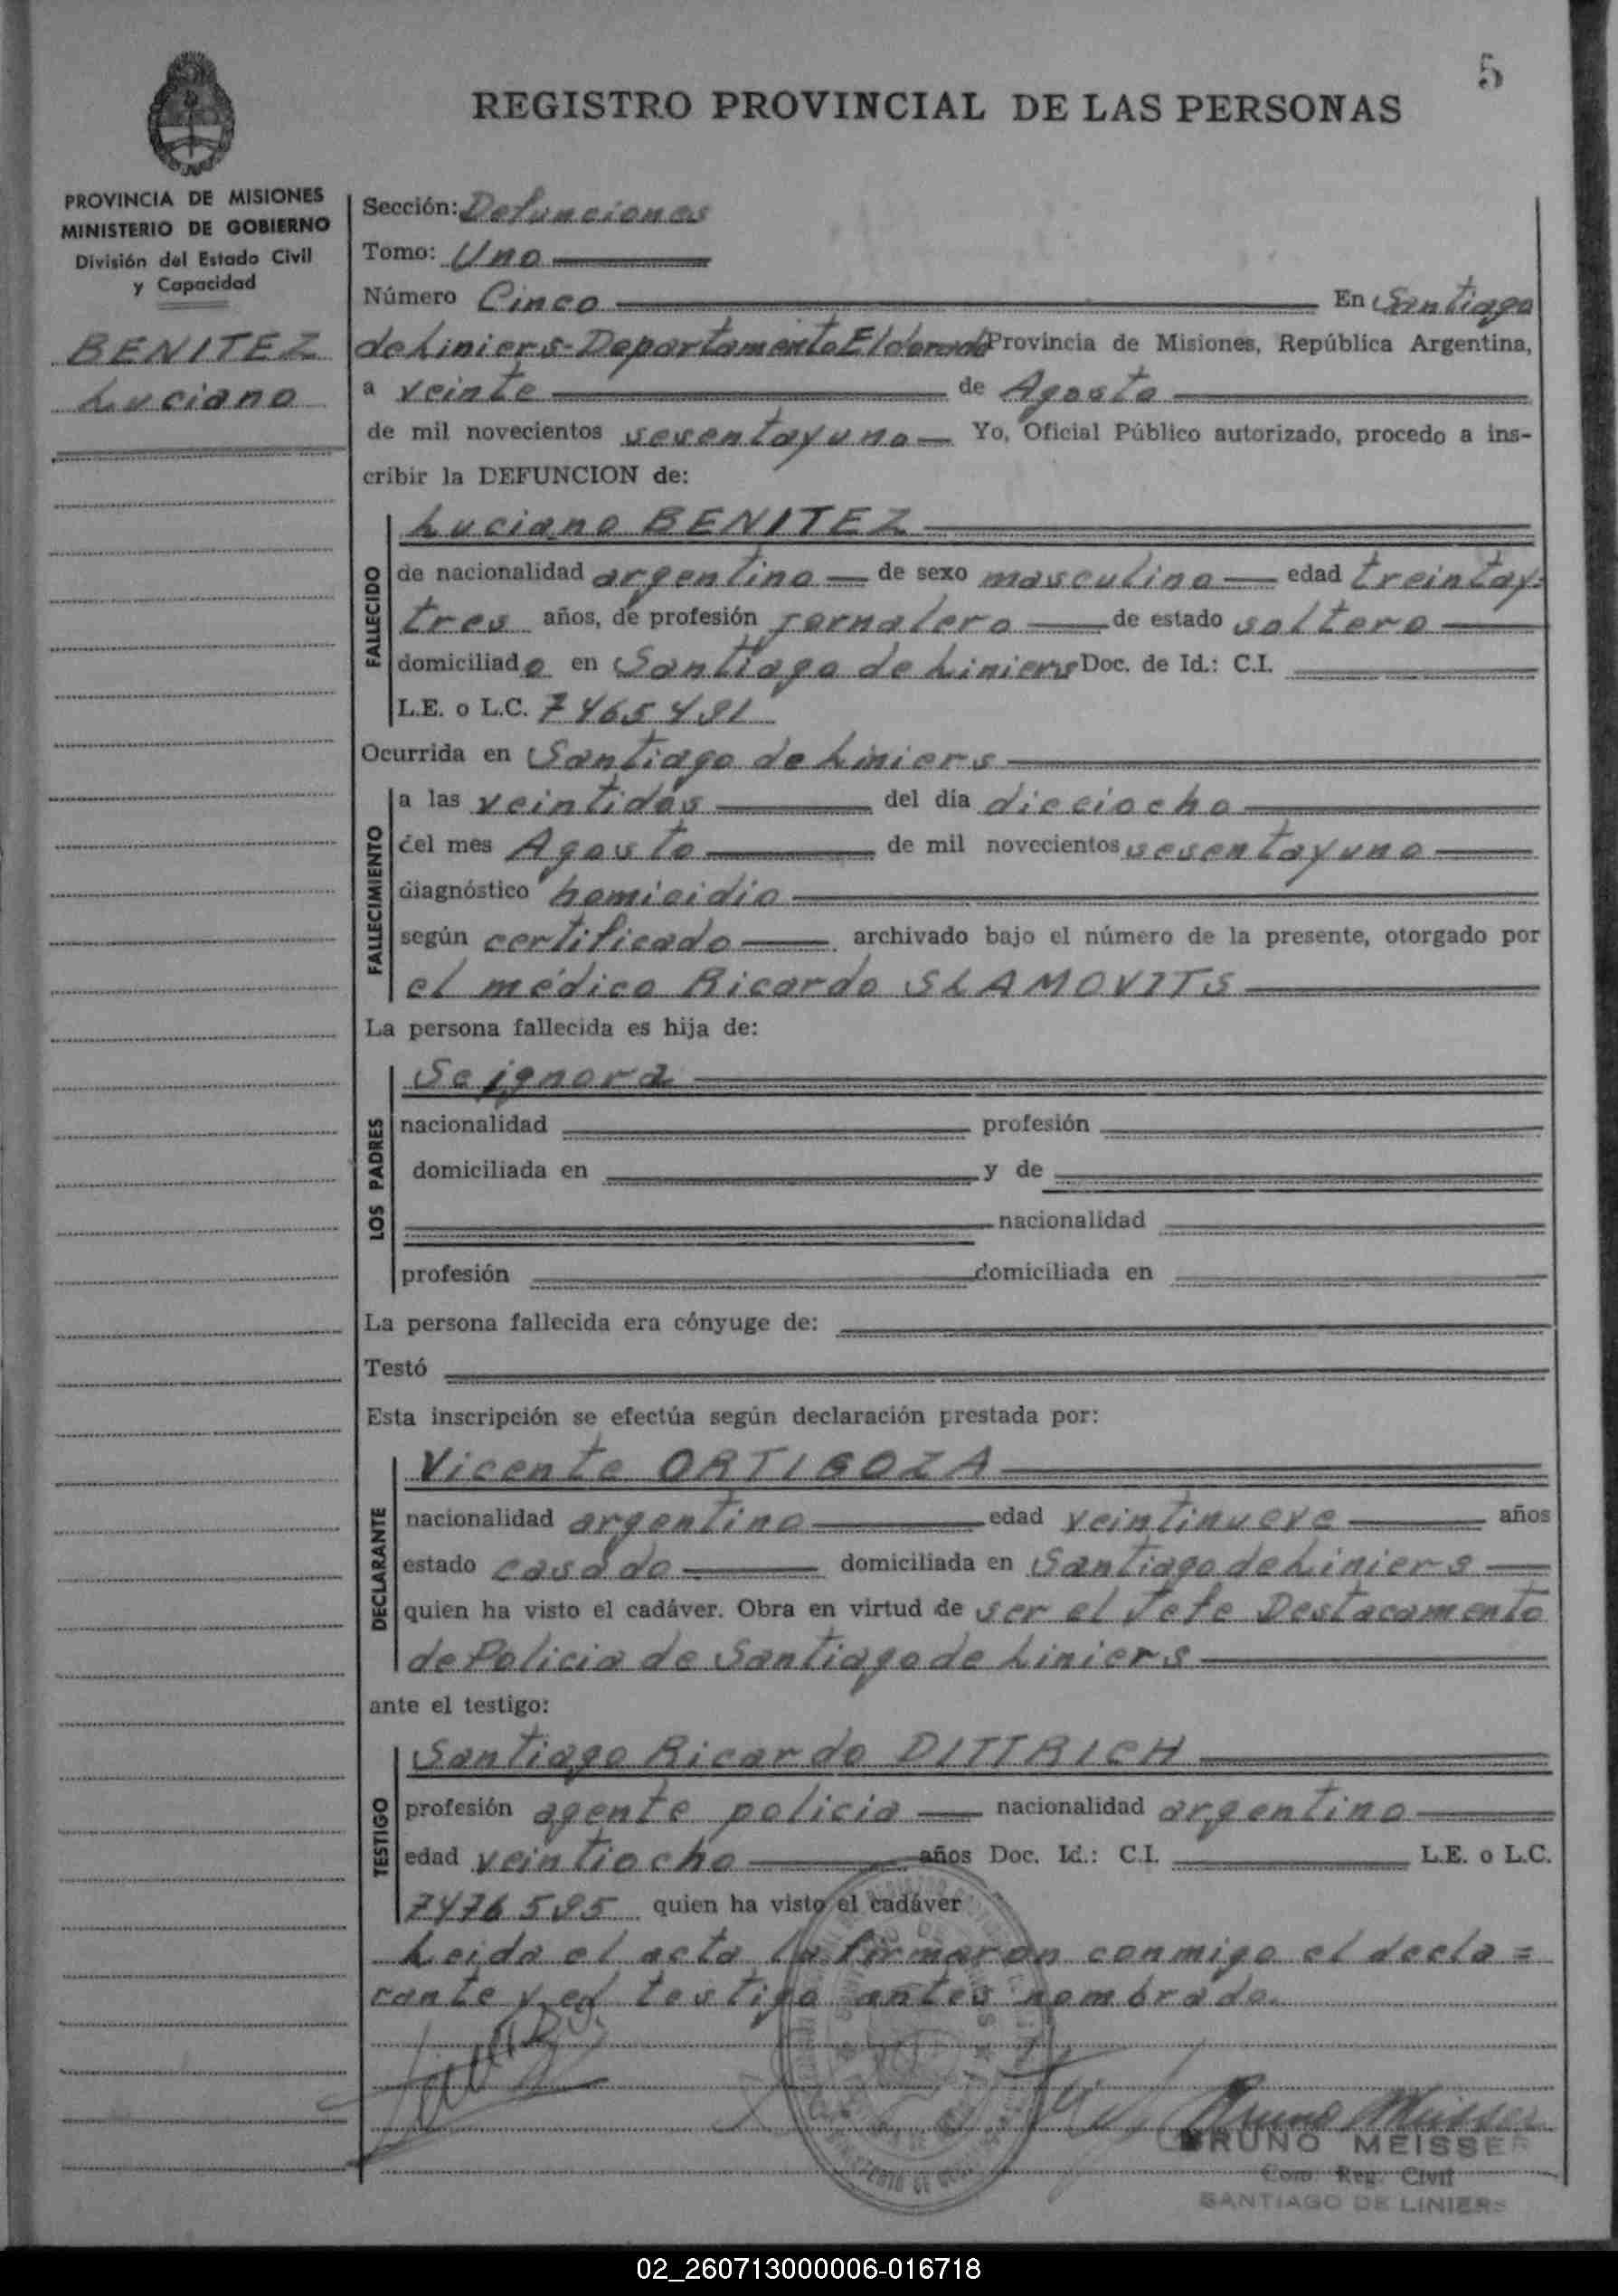 5
REGISTRO PROVINCIAL DE LAS PERSONAS
PROVINCIA DE MISIONES
MINISTERIO DE GOBIERNO
División del Estado Civil
y Capacidad
BENITEZ
Luciano
Sección: Defunciones
Tomo: Uno
Número Cinco En Santiago
de Liniers - Departamento Eldorado Provincia de Misiones, República Argentina,
a veinte de Agosto
de mil novecientos sesentayuno Yo, Oficial Público autorizado, procedo a ins-
cribir la DEFUNCION de:
FALLECIDO
Luciano BENITEZ
de nacionalidad argentina de sexo masculino edad treintay-
tres años, de profesión jornalero de estado soltero
domiciliado en Santiago de Liniers Doc. de Id.: C.I.
L.E. o L.C. 7465491
Ocurrida en Santiago de Liniers
FALLECIMIENTO
a las veintidos del día dieciocho
del mes Agosto de mil novecientos sesentayuno
diagnóstico homicidio
según certificado archivado bajo el número de la presente, otorgado por
el médico Ricardo SLAMOVITS
La persona fallecida es hija de:
LOS PADRES
Se ignora
nacionalidad profesión
domiciliada en y de
nacionalidad
profesión domiciliada en
La persona fallecida era cónyuge de:
Testó
Esta inscripción se efectúa según declaración prestada por:
DECLARANTE
Vicente ORTIGOZA
nacionalidad argentino edad veintinueve años
estado casado domiciliada en Santiago de Liniers
quien ha visto el cadáver. Obra en virtud de ser el Jefe Destacamento
de Policia de Santiago de Liniers
ante el testigo:
TESTIGO
Santiago Ricardo DITTRICH
profesión agente policia nacionalidad argentino
edad veintiocho años Doc. Id.: C.I. L.E. o L.C.
7476595 quien ha visto el cadáver
Leida el acta la firmaron conmigo el decla=
rante y el testigo antes nombrado.
BRUNO MEISSER
Com. Reg. Civil
SANTIAGO DE LINIERS
02_260713000006-016718